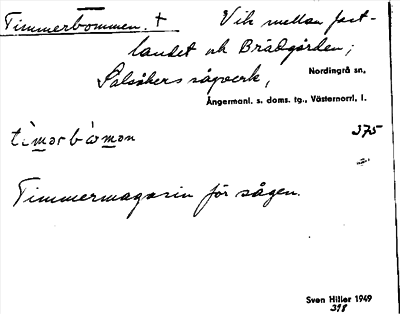 Timmerbommen. † Vik mellan fast-
landet och Brädgården;
Salsåkers sågverk,
Nordingrå sn,
Ångermanl. s. doms. tg., Västernorrl. l.
375
Timmermagasin för sågen.
Sven Hiller 1949
398